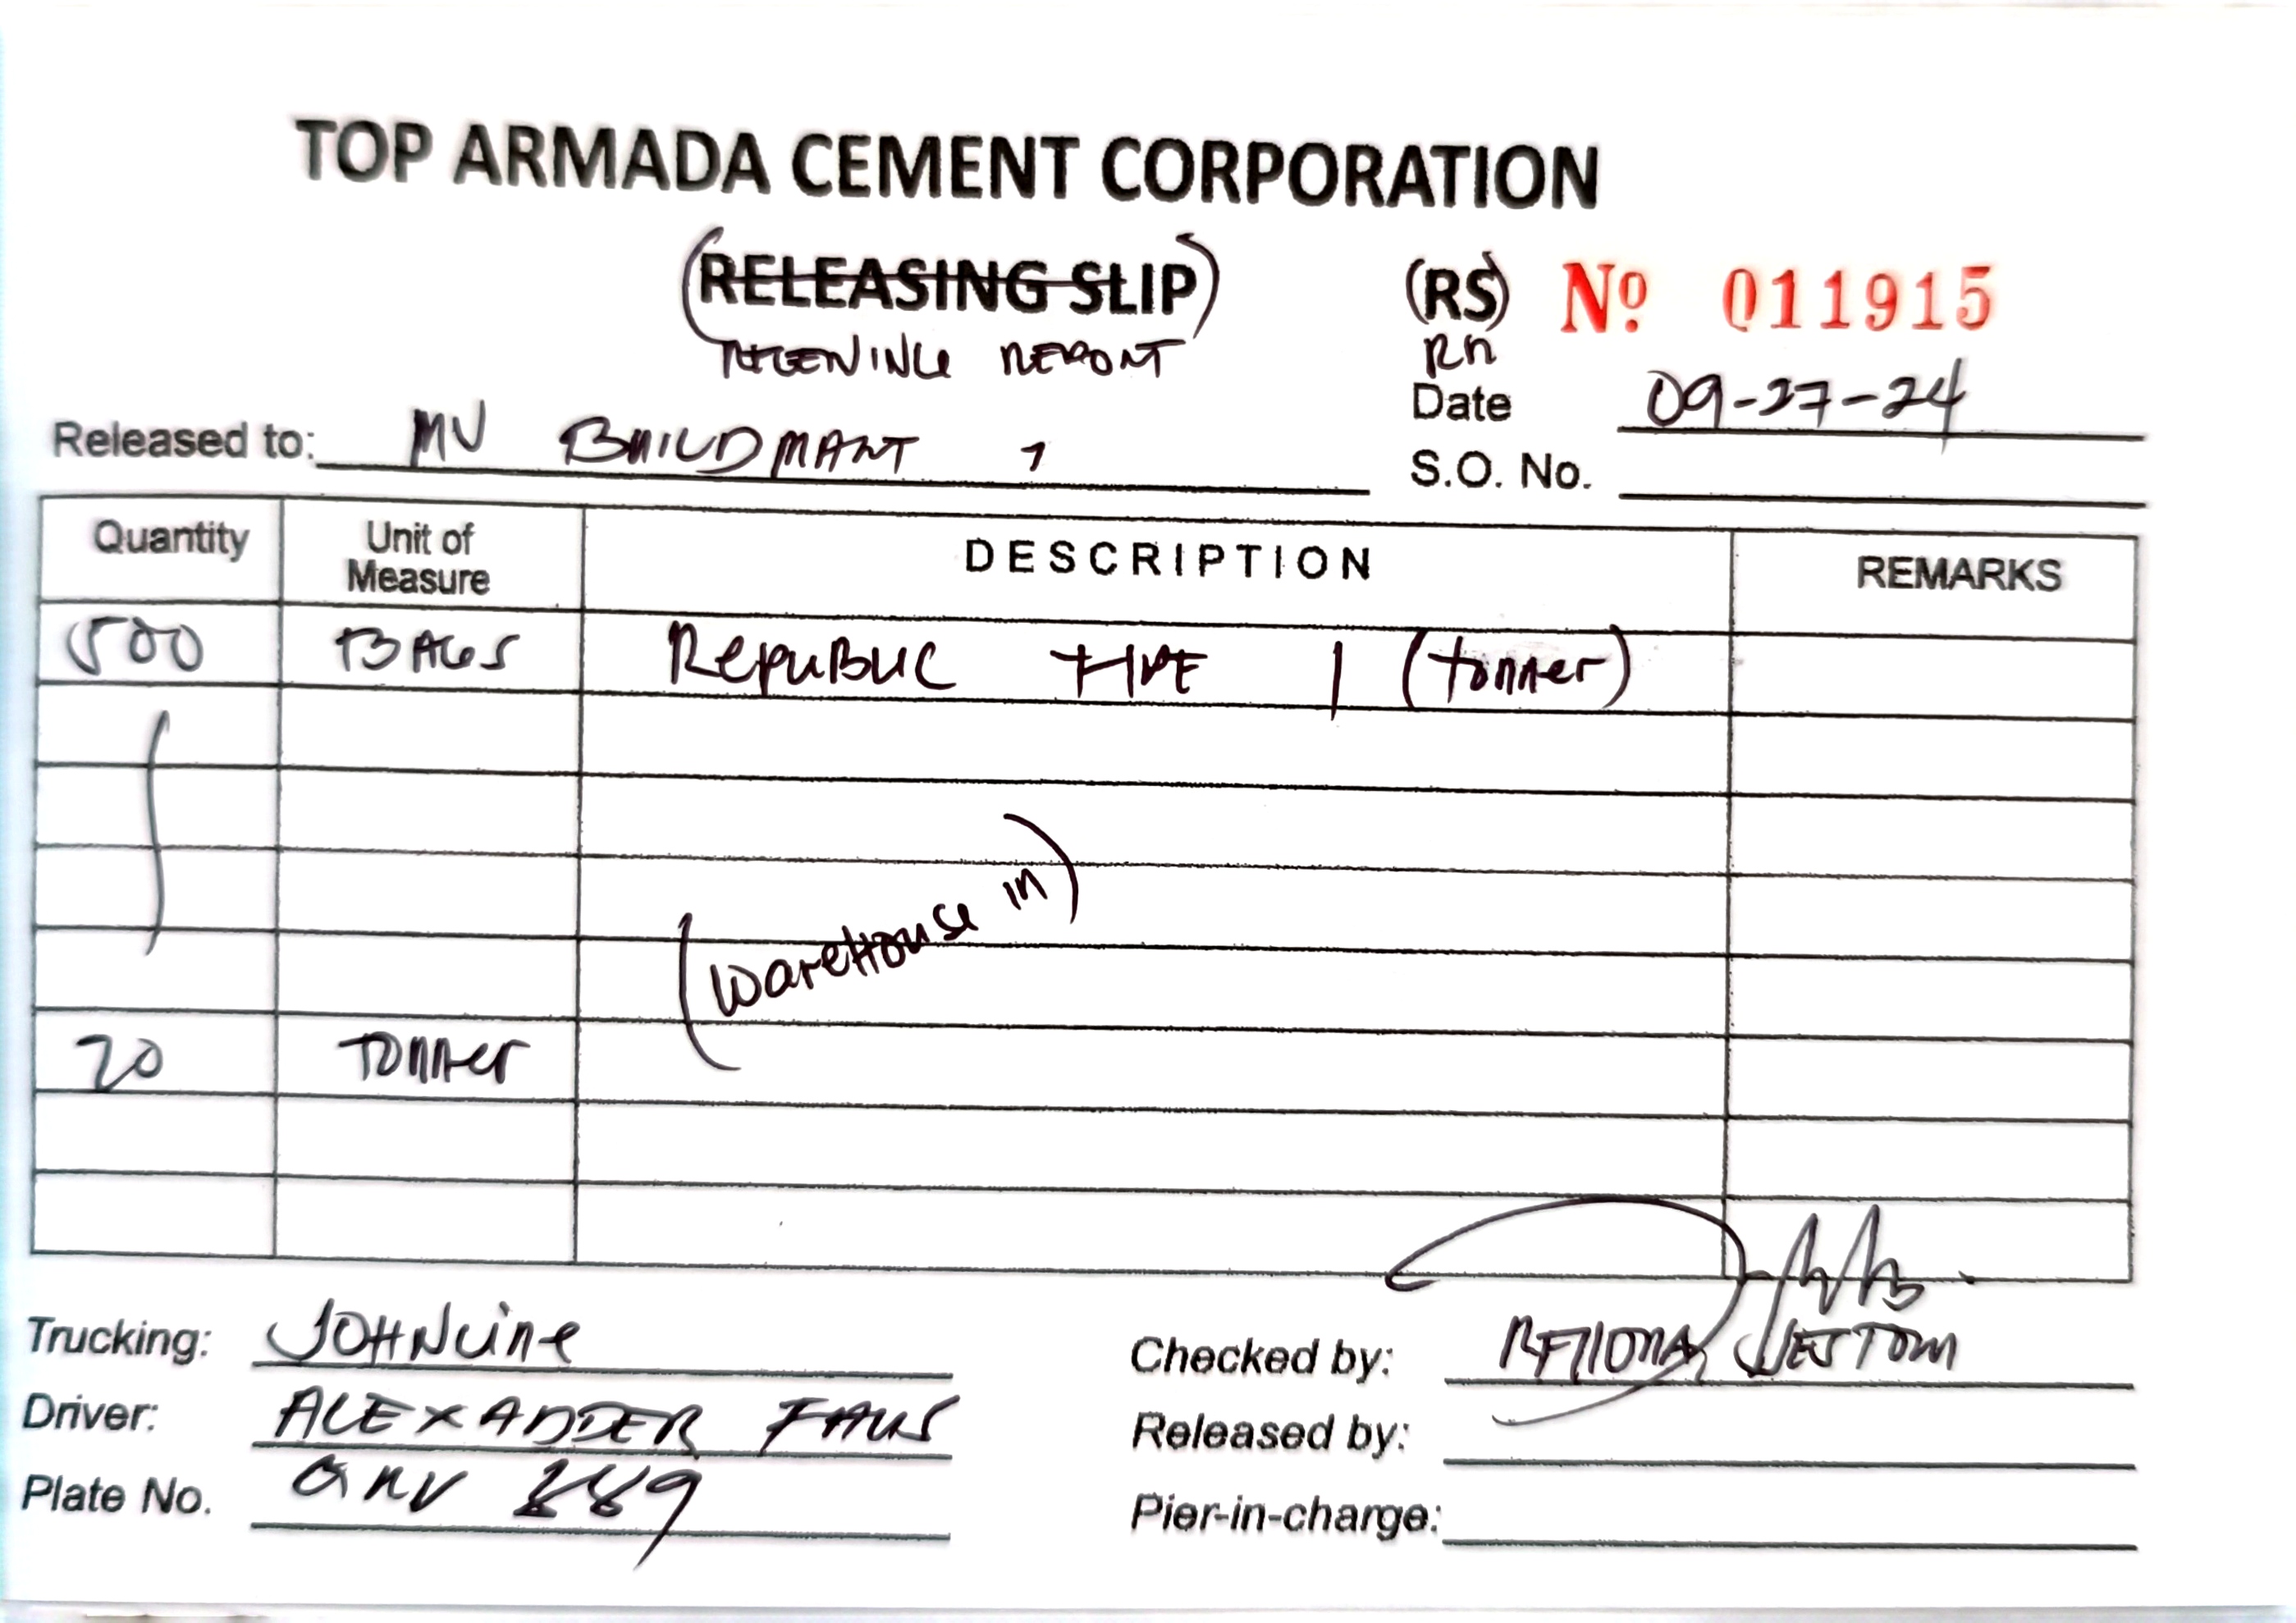 TOP ARMADA CEMENT CORPORATION
(RELEASING SLIP) (RS) Nº 011915
RECEIVING REPORT RR
Date 09-27-24
Released to: MV BUILDMART 1
S.O. No.
Quantity Unit of Measure DESCRIPTION REMARKS
500 BAGS REPUBLIC TYPE 1 (tonner)
(WareHouse in)
20 TONNer
Trucking: JOHNLine
Checked by:
Driver: ALEXADDER
Released by:
Plate No. 889
Pier-in-charge: